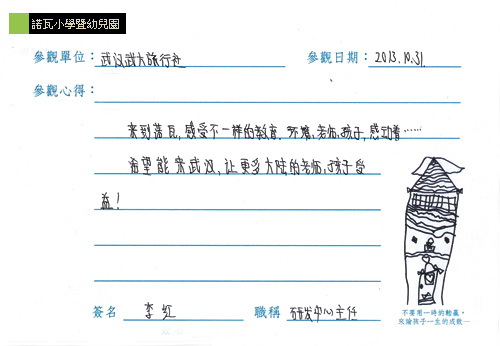 諾瓦小學暨幼兒園
參觀單位：武汉武大旅行社 參觀日期：2013.10.31.
參觀心得：
来到诺瓦,感受不一样的教育.环境,老师,孩子,感动着……
希望能来武汉,让更多大陆的老师,孩子受
益!
簽名 李红 職稱 研发中心主任
不要用一時的輸贏，
來論孩子一生的成敗